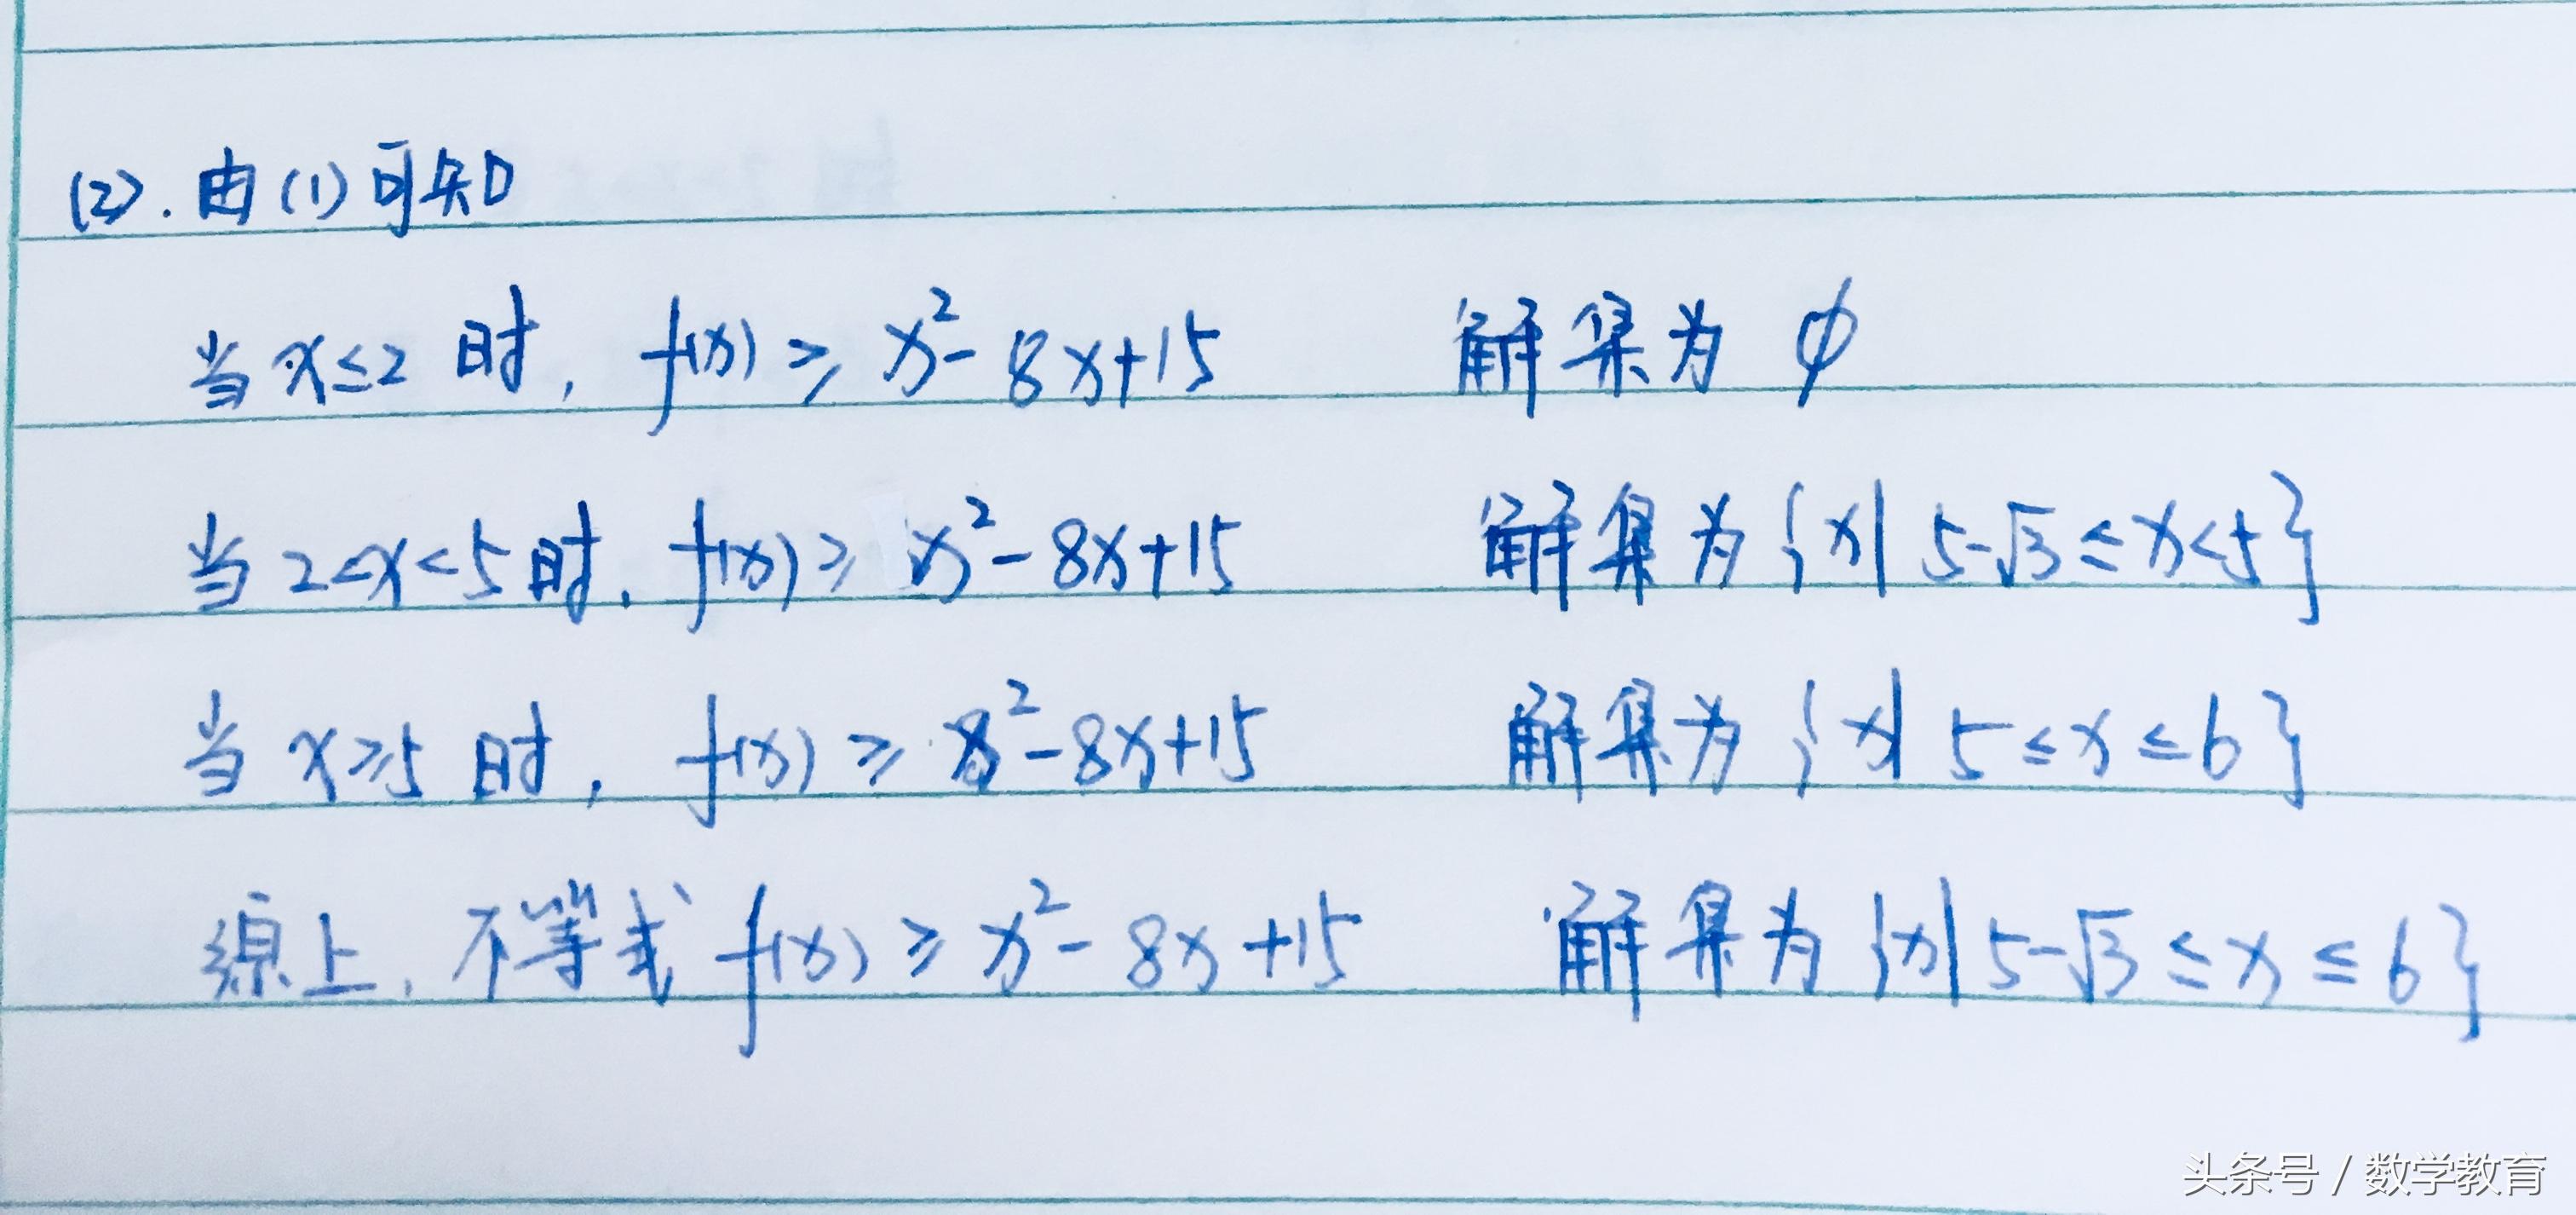 (2). 由(1)可知
当 x≤2 时, f(x) ≥ x²- 8x+15 解集为 ϕ
当 2<x<5 时, f(x) ≥ x²- 8x+15 解集为 {x| 5-√3 ≤ x<5}
当 x≥5 时, f(x) ≥ x²-8x+15 解集为 {x| 5 ≤ x ≤ 6}
综上, 不等式 f(x) ≥ x²- 8x+15 解集为 {x| 5-√3 ≤ x ≤ 6}
头条号 / 数学教育